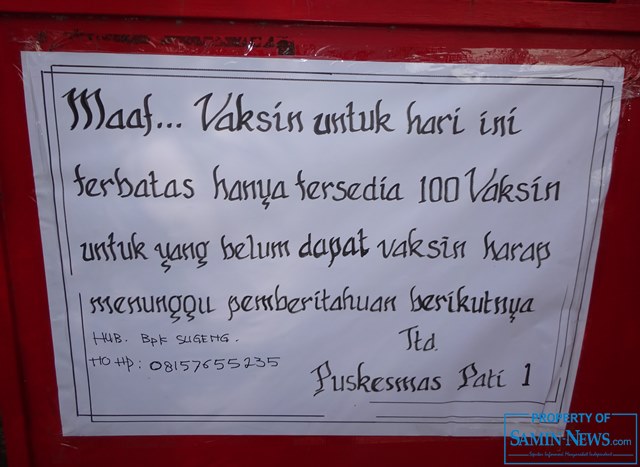 Maaf... Vaksin untuk hari ini
terbatas hanya tersedia 100 Vaksin
untuk yang belum dapat vaksin harap
menunggu pemberitahuan berikutnya
HUB. Bpk SUGENG.
NO HP: 08157655235
Ttd.
Puskesmas Pati 1
PROPERTY OF
SAMIN-NEWS.com